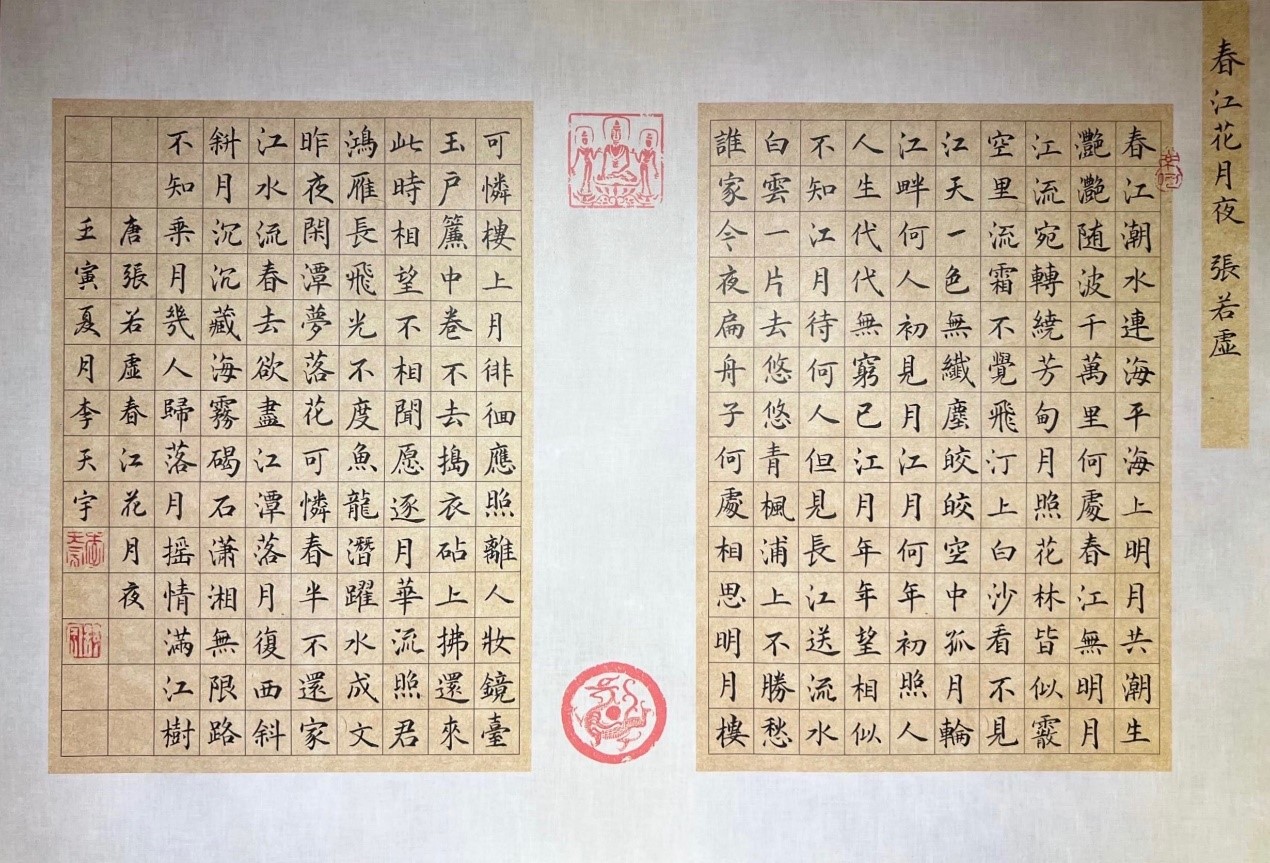 春江花月夜 張若虛
春江潮水連海平海上明月共潮生
灧灧随波千萬里何處春江無明月
江流宛轉繞芳甸月照花林皆似霰
空里流霜不覺飛汀上白沙看不見
江天一色無纖塵皎皎空中孤月輪
江畔何人初見月江月何年初照人
人生代代無窮已江月年年望相似
不知江月待何人但見長江送流水
白雲一片去悠悠青楓浦上不勝愁
誰家今夜扁舟子何處相思明月樓
可憐樓上月徘徊應照離人妝鏡臺
玉户簾中卷不去搗衣砧上拂還來
此時相望不相聞愿逐月華流照君
鴻雁長飛光不度魚龍潛躍水成文
昨夜閑潭夢落花可憐春半不還家
江水流春去欲盡江潭落月復西斜
斜月沉沉藏海霧碣石瀟湘無限路
不知乘月幾人歸落月摇情滿江樹
唐張若虛春江花月夜
壬寅夏月李天宇